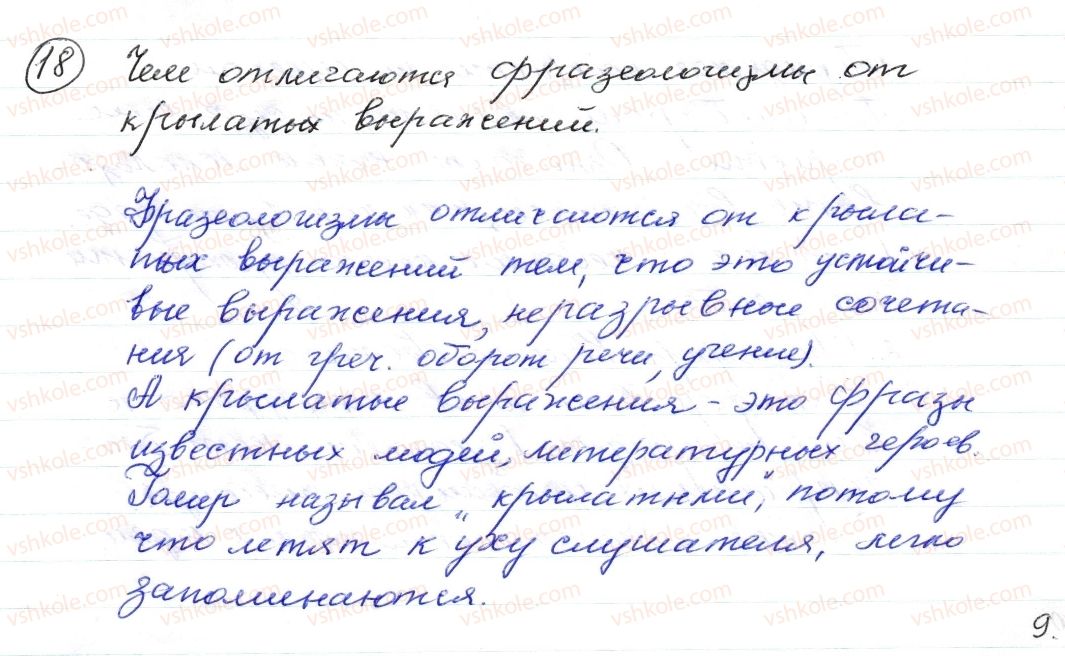 18 Чем отличаются фразеологизмы от
крылатых выражений.
Фразеологизмы отличаются от крыла-
тых выражений тем, что это устойчи-
вые выражения, неразрывные сочета-
ния (от греч. оборот речи, учение).
А крылатые выражения - это фразы
известных людей, литературных героев.
Гомер называл „крылатыми", потому
что летят к уху слушателя, легко
запоминаются.
9.
vshkole.com